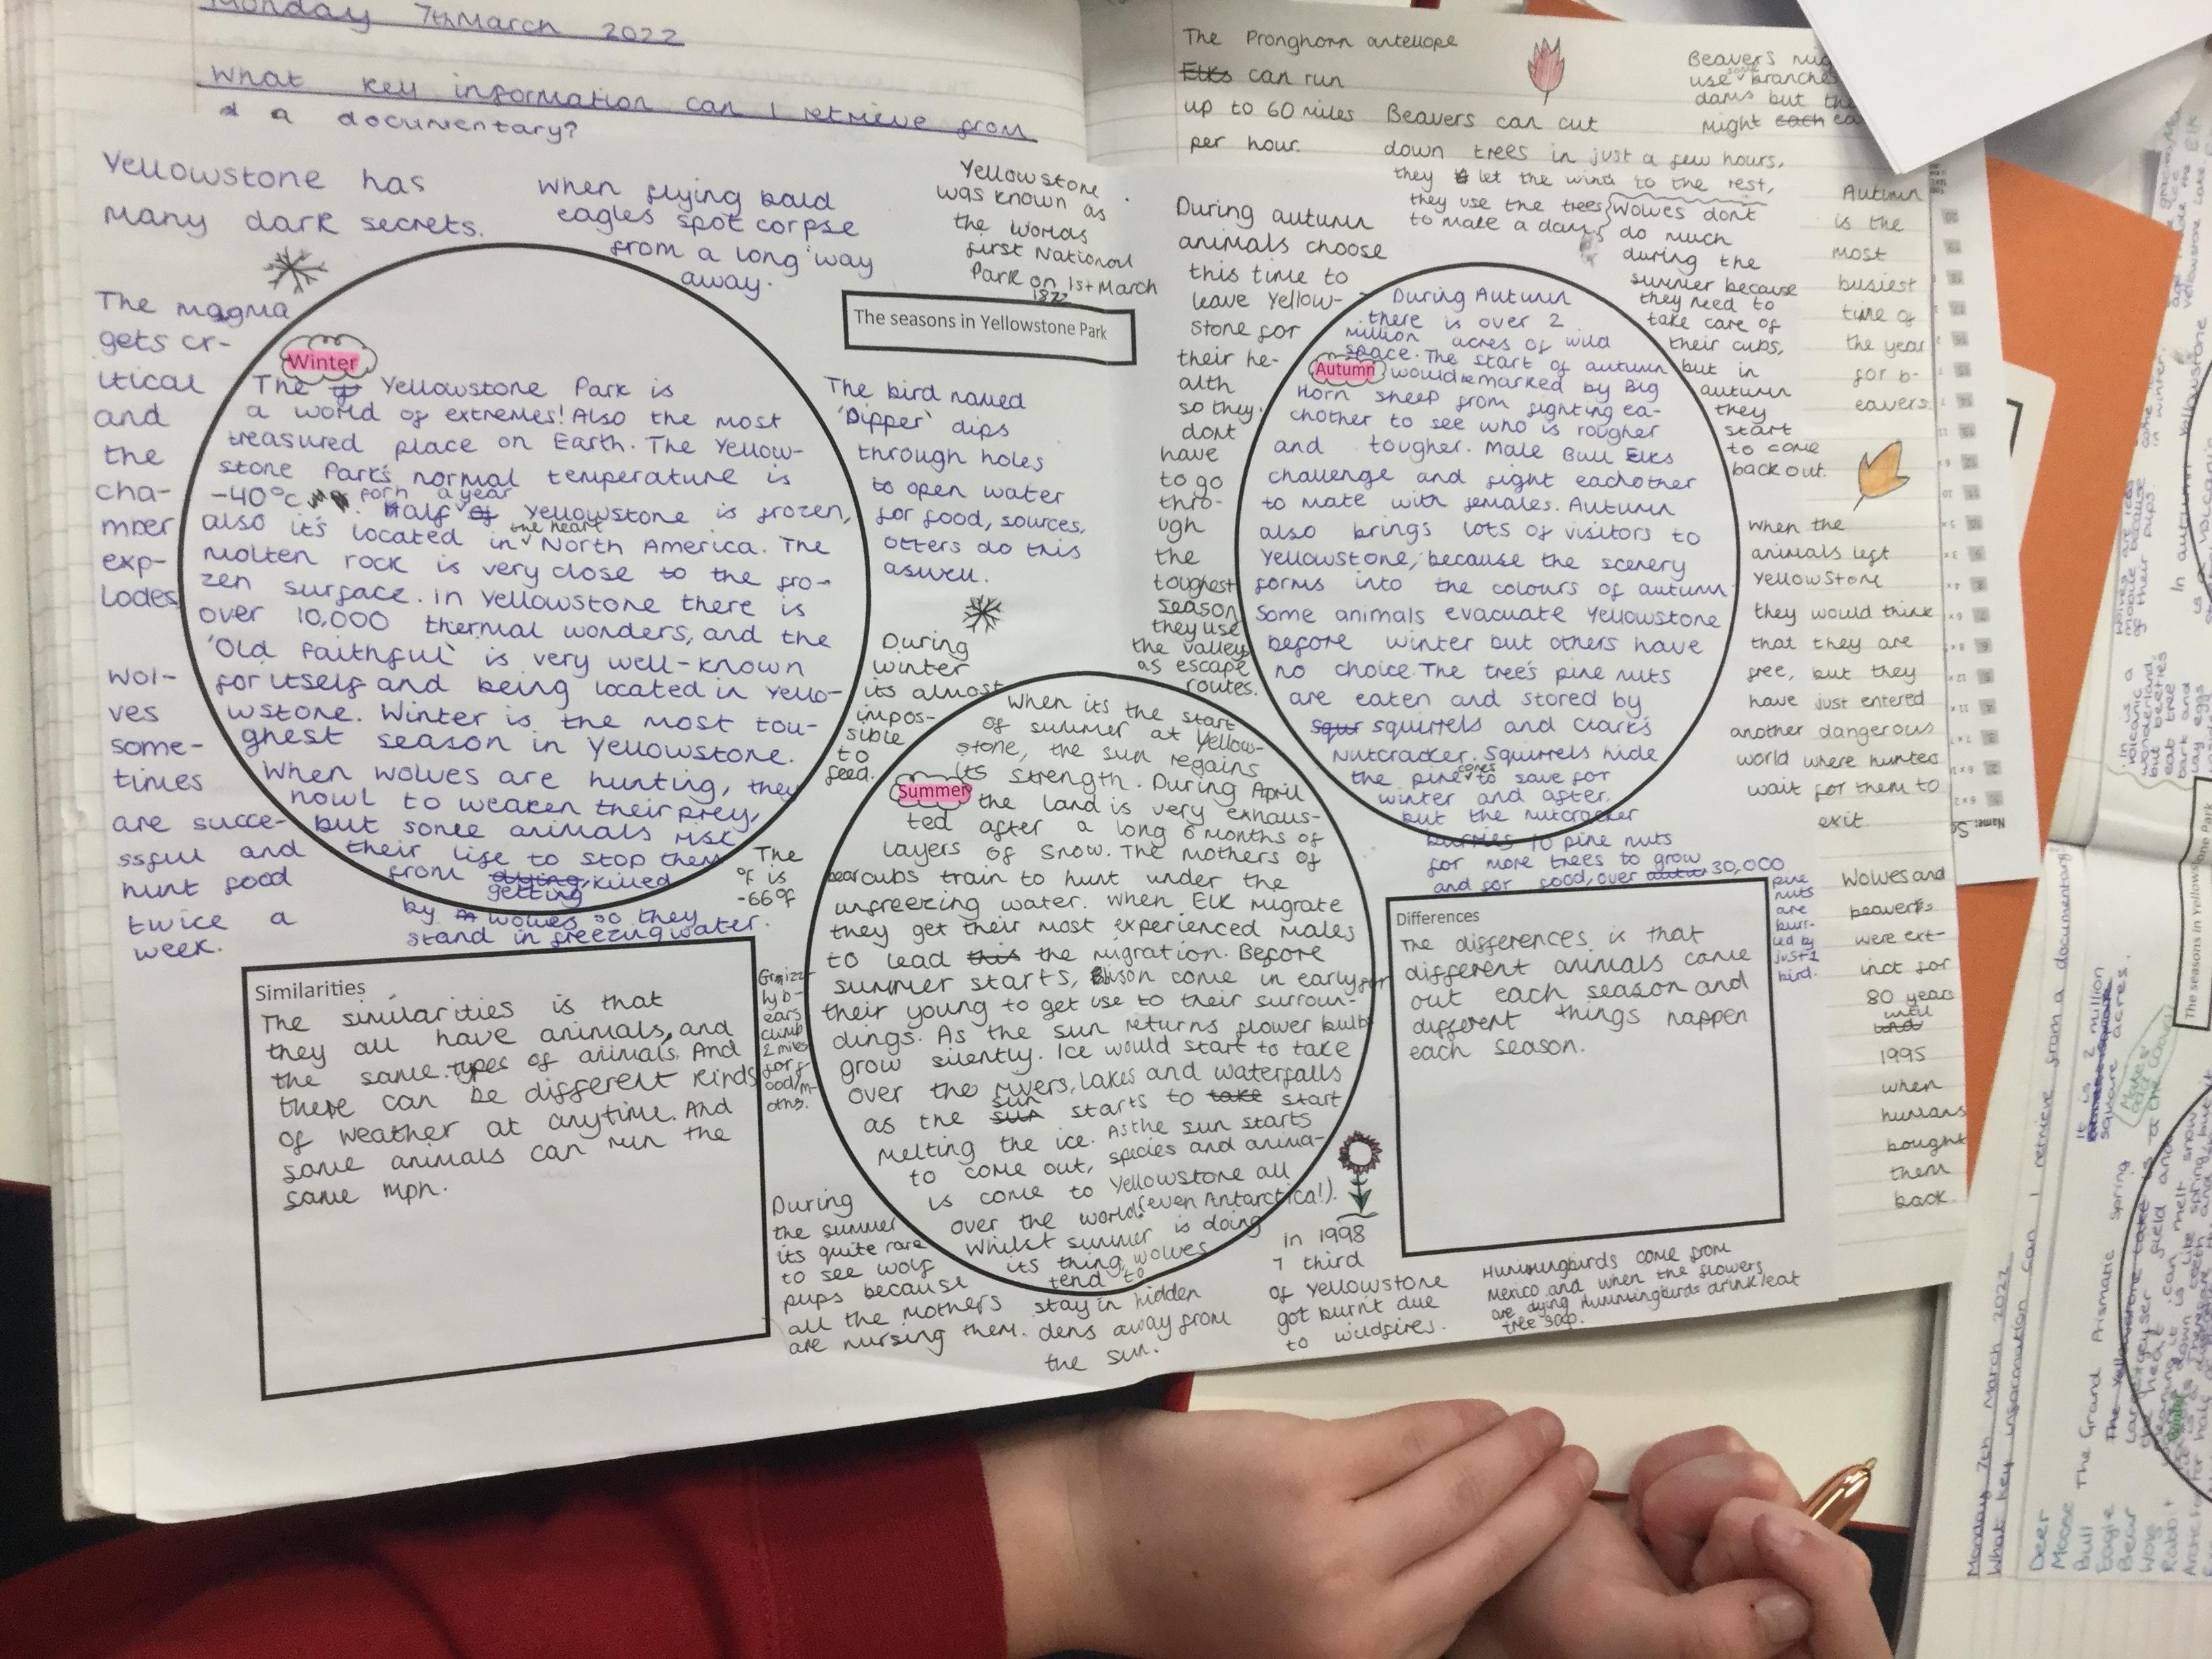 Monday 7th March 2022
What key information can I retrieve from
a documentary?
Yellowstone has
many dark secrets.
When flying bald
eagles spot corpse
from a long way
away.
Yellowstone
was known as
the worlds
first National
Park on 1st March
1872
The seasons in Yellowstone Park
The magma
gets cr-
itical
and
the
cha-
mber
exp-
lodes
wol-
ves
some-
times
are succe-
ssful and
hunt food
twice a
week.
Winter
The Yellowstone Park is
a world of extremes! Also the most
treasured place on Earth. The Yellow-
stone Park's normal temperature is
-40°c
a year
Half of Yellowstone is frozen,
also it's located in the heart North America. The
molten rock is very close to the fro-
zen surface. In Yellowstone there is
over 10,000 thermal wonders, and the
'Old Faithful' is very well-known
for itself and being located in Yello-
wstone. Winter is the most tou-
ghest season in Yellowstone.
When wolves are hunting, they
howl to weaken their prey,
but some animals risk
their life to stop them
from dying, killed
getting
by wolves so they
stand in freezing water.
The
°F is
-66°F
The bird named
'Dipper' dips
through holes
to open water
for food, sources,
otters do this
aswell.
During
winter
its almost
impos-
sible
to
feed.
When its the start
of summer at Yellow-
stone, the sun regains
its strength. During April
Summer
the land is very exhaus-
ted after a long 6 months of
layers of snow. The mothers of
bear cubs train to hunt under the
unfreezing water. When Elk migrate
they get their most experienced males
to lead this the migration. Before
summer starts, Bison come in early for
their young to get use to their surroun-
dings. As the sun returns flower bulb
grow silently. Ice would start to take
over the rivers, lakes and waterfalls
as the sun sun starts to take start
melting the ice. As the sun starts
to come out, species and anima-
ls come to Yellowstone all
over the world (even Antarctica!).
Whilst summer is doing
its thing, wolves
tend to
stay in hidden
dens away from
the sun.
Similarities
The similarities is that
they all have animals, and
the same types of animals. And
there can be different kinds
of weather at anytime. And
some animals can run the
same mph.
Grizz-
ly b-
ears
climb
2 miles
for f
ood/m-
oths.
During
the summer
its quite rare
to see wolf
pups because
all the mothers
are nursing them.
The Pronghorn antellope
Elks can run
up to 60 miles
per hour.
Beavers can cut
down trees in just a few hours,
they let the wind to the rest,
they use the trees
to make a dam
Beavers
use some branches
dams but
might each
During autumn
animals choose
this time to
leave Yellow-
stone for
their he-
alth
so they
dont
have
to go
thro-
ugh
the
toughest
season
they use
the valley
as escape
routes.
Wolves dont
do much
during the
summer because
they need to
take care of
their cubs,
but in
autumn
they
start
to come
back out.
Autumn
is the
most
busiest
time of
the year
for b-
eavers
During Autumn
there is over 2
million acres of wild
space. The start of autumn
Autumn
would be marked by Big
Horn sheep from fighting ea-
chother to see who is rougher
and tougher. Male Bull Elks
challenge and fight eachother
to mate with females. Autumn
also brings lots of visitors to
Yellowstone, because the scenery
forms into the colours of autumn
Some animals evacuate Yellowstone
before winter but others have
no choice. The tree's pine nuts
are eaten and stored by
squr squirrels and Clark's
Nutcracker. Squirrels hide
the pine cones to save for
winter and after.
but the nutcracker
burries 10 pine nuts
for more trees to grow
and for food, over 30,000
pine
nuts
are
burr-
ied by
just 1
bird.
When the
animals left
Yellowstone
they would think
that they are
free, but they
have just entered
another dangerous
world where hunters
wait for them to
exit.
Wolves and
beavers
were ext-
inct for
80 years
until
1995
when
humans
bought
them
back
Differences
The differences is that
different animals came
out each season and
different things happen
each season.
in 1998
1 third
of Yellowstone
got burnt due
to wildfires.
Hummingbirds come from
Mexico and when the flowers
are dying hummingbirds drink/eat
tree sap.
Name:
The seasons in Yellowstone Park
Monday 7th March 2022
What key information can I retrieve from a documentary?
Deer
Moose
Bull
Eagle
Bear
Wolf
Rabbit
The Grand Prismatic Spring
It is 2 million
square acres.